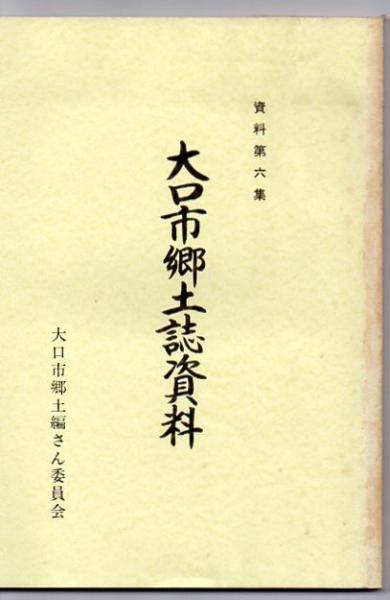 資料第六集
大口市郷土誌資料
大口市郷土編さん委員会